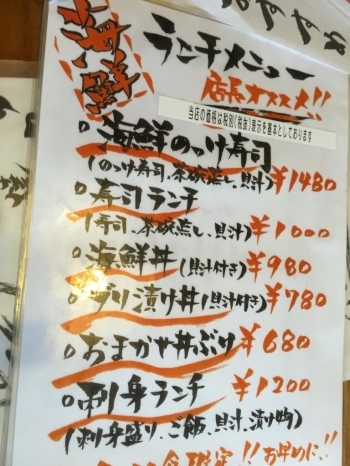 海鮮
ランチメニュー
店長オススメ!!
当店の価格は税別(税抜)表示を基本としております
海鮮のっけ寿司
(のっけ寿司、茶碗蒸し、貝汁) ¥1480
寿司ランチ
(寿司、茶碗蒸し、貝汁) ¥1000
海鮮丼 (貝汁付き) ¥980
ブリ漬け丼 (貝汁付き) ¥780
おまかせ丼ぶり ¥680
刺身ランチ ¥1200
(刺身盛り、ご飯、貝汁、漬け物)
食限定!!お早めに!!